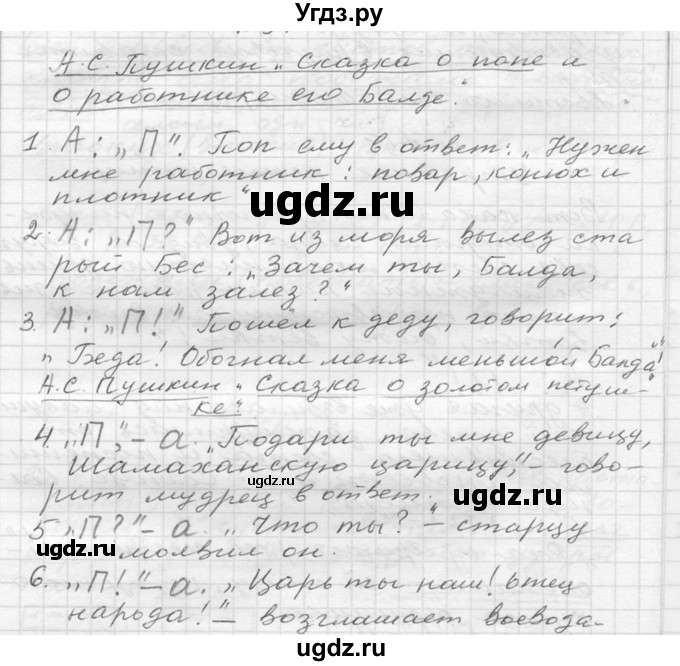 Угдз.ру
А.С. Пушкин „Сказка о попе и
о работнике его Балде".
1. А: „П". Поп ему в ответ: „Нужен
мне работник: повар, конюх и
плотник"
ugdz.ru
2. А: „П?" Вот из моря вылез ста
рый Бес: „Зачем ты, Балда,
к нам залез?"
ugdz.ru
3. А: „П!" Пошёл к деду, говорит:
„Беда! Обогнал меня меньшой Балда!"
А.С. Пушкин „Сказка о золотом петуш-
ке".
4. „П,"– а. „Подари ты мне девицу,
Шамаханскую царицу,"– гово-
рит мудрец в ответ.
ugdz.ru
ugdz.ru
5 „П?"– а. „Что ты?"– старцу
молвил он.
ugdz.ru
6. „П!"– а. „Царь ты наш! отец
народа!"– возглашает воевода-
ugdz.ru
ugdz.ru